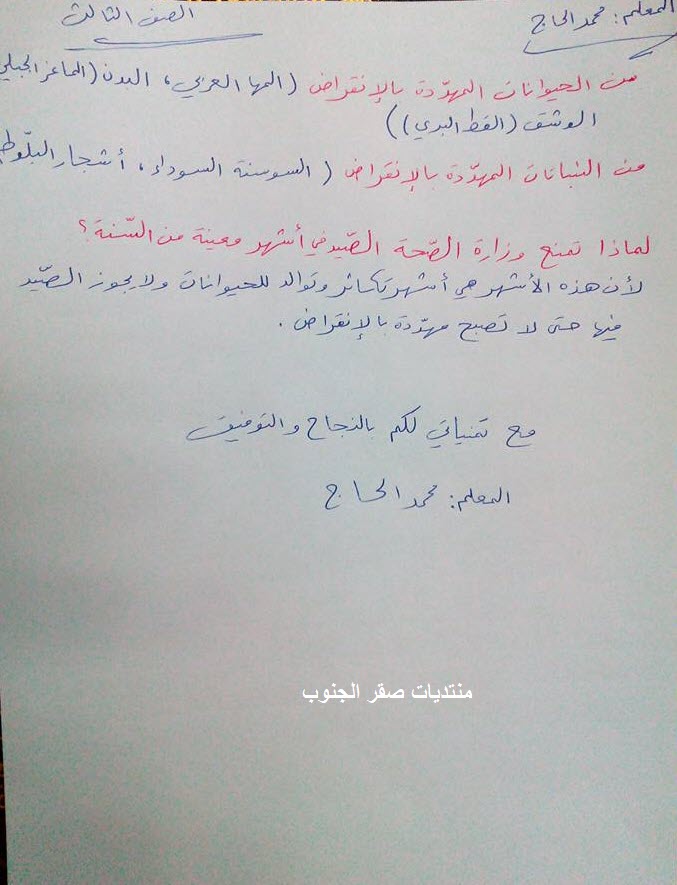 المعلم: محمد الحاج
الصف الثالث
من الحيوانات المهدّدة بالإنقراض (المها العربي، البدن (الماعز الجبلي
الوشق (القط البري))
من النباتات المهدّدة بالإنقراض (السوسنة السوداء، أشجار البلّوط
لماذا تمنع وزارة الصّحة الصّيد في أشهر معينة من السّنة؟
لأن هذه الأشهر هي أشهر تكاثر وتوالد للحيوانات ولا يجوز الصّيد
فيها حتى لا تصبح مهدّدة بالإنقراض.
مع تمنياتي لكم بالنجاح والتوفيق
المعلم: محمد الحاج
منتديات صقر الجنوب